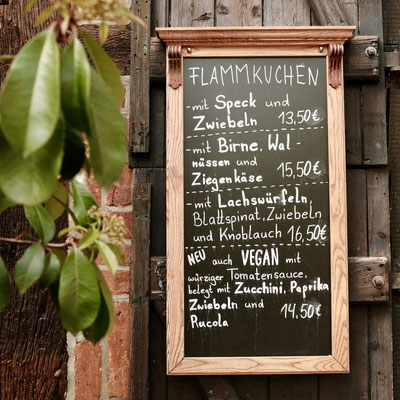 FLAMMKUCHEN
- mit Speck und
Zwiebeln 13,50€
- mit Birne, Wal-
nüssen und
Ziegenkäse 15,50€
- mit Lachswürfeln,
Blattspinat, Zwiebeln
und Knoblauch 16,50€
NEU auch VEGAN mit
würziger Tomatensauce,
belegt mit Zucchini, Paprika
Zwiebeln und
Rucola 14,50€